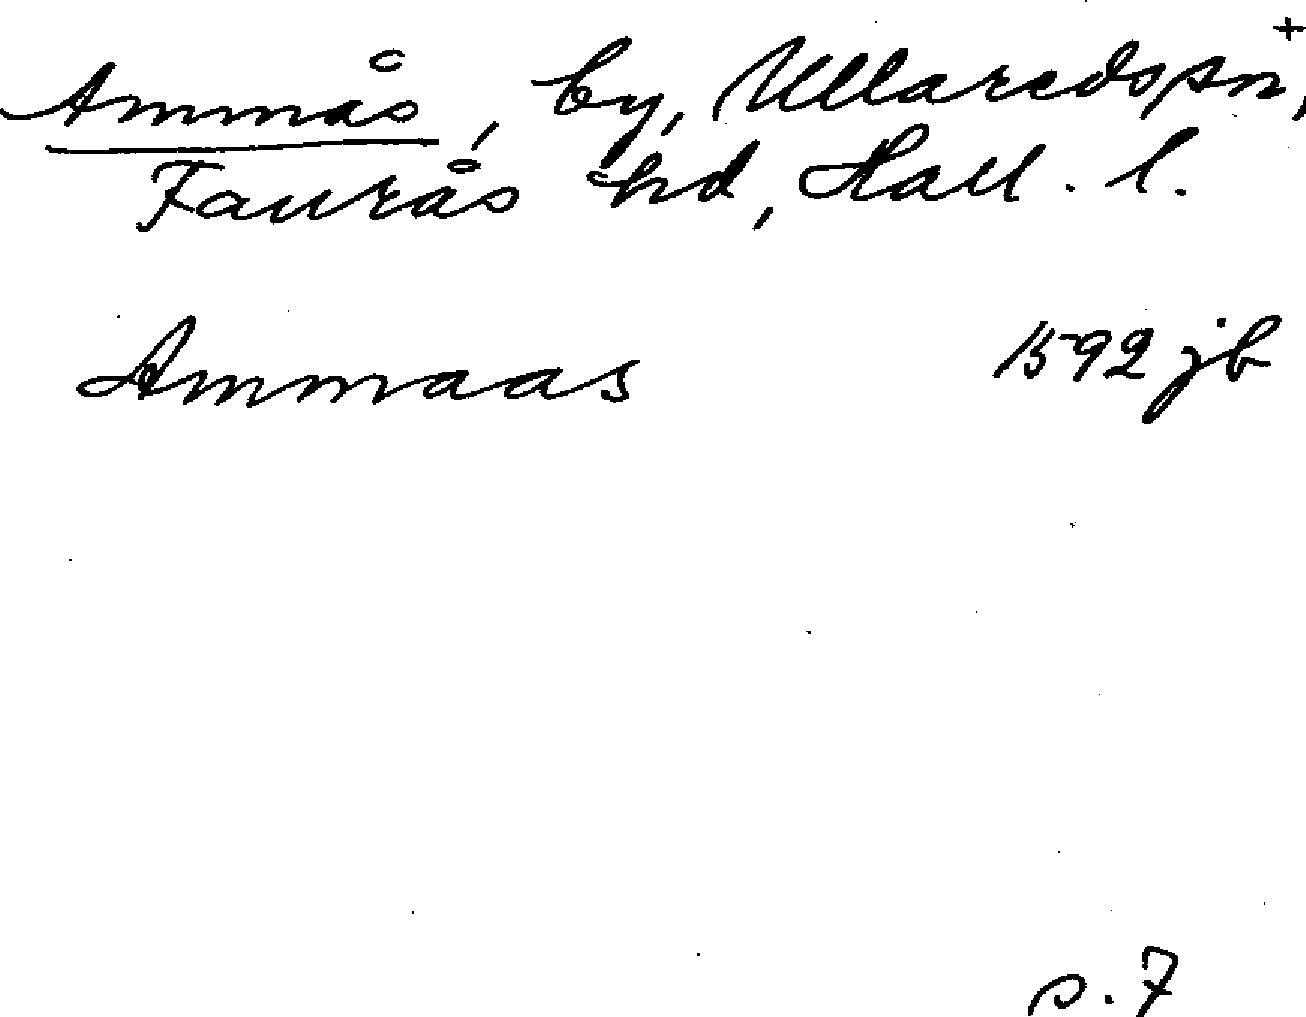 Ammås, by, Ullareds sn, +
Faurås hd, Hall. l.
Ammaas 1592 jb
s. 7